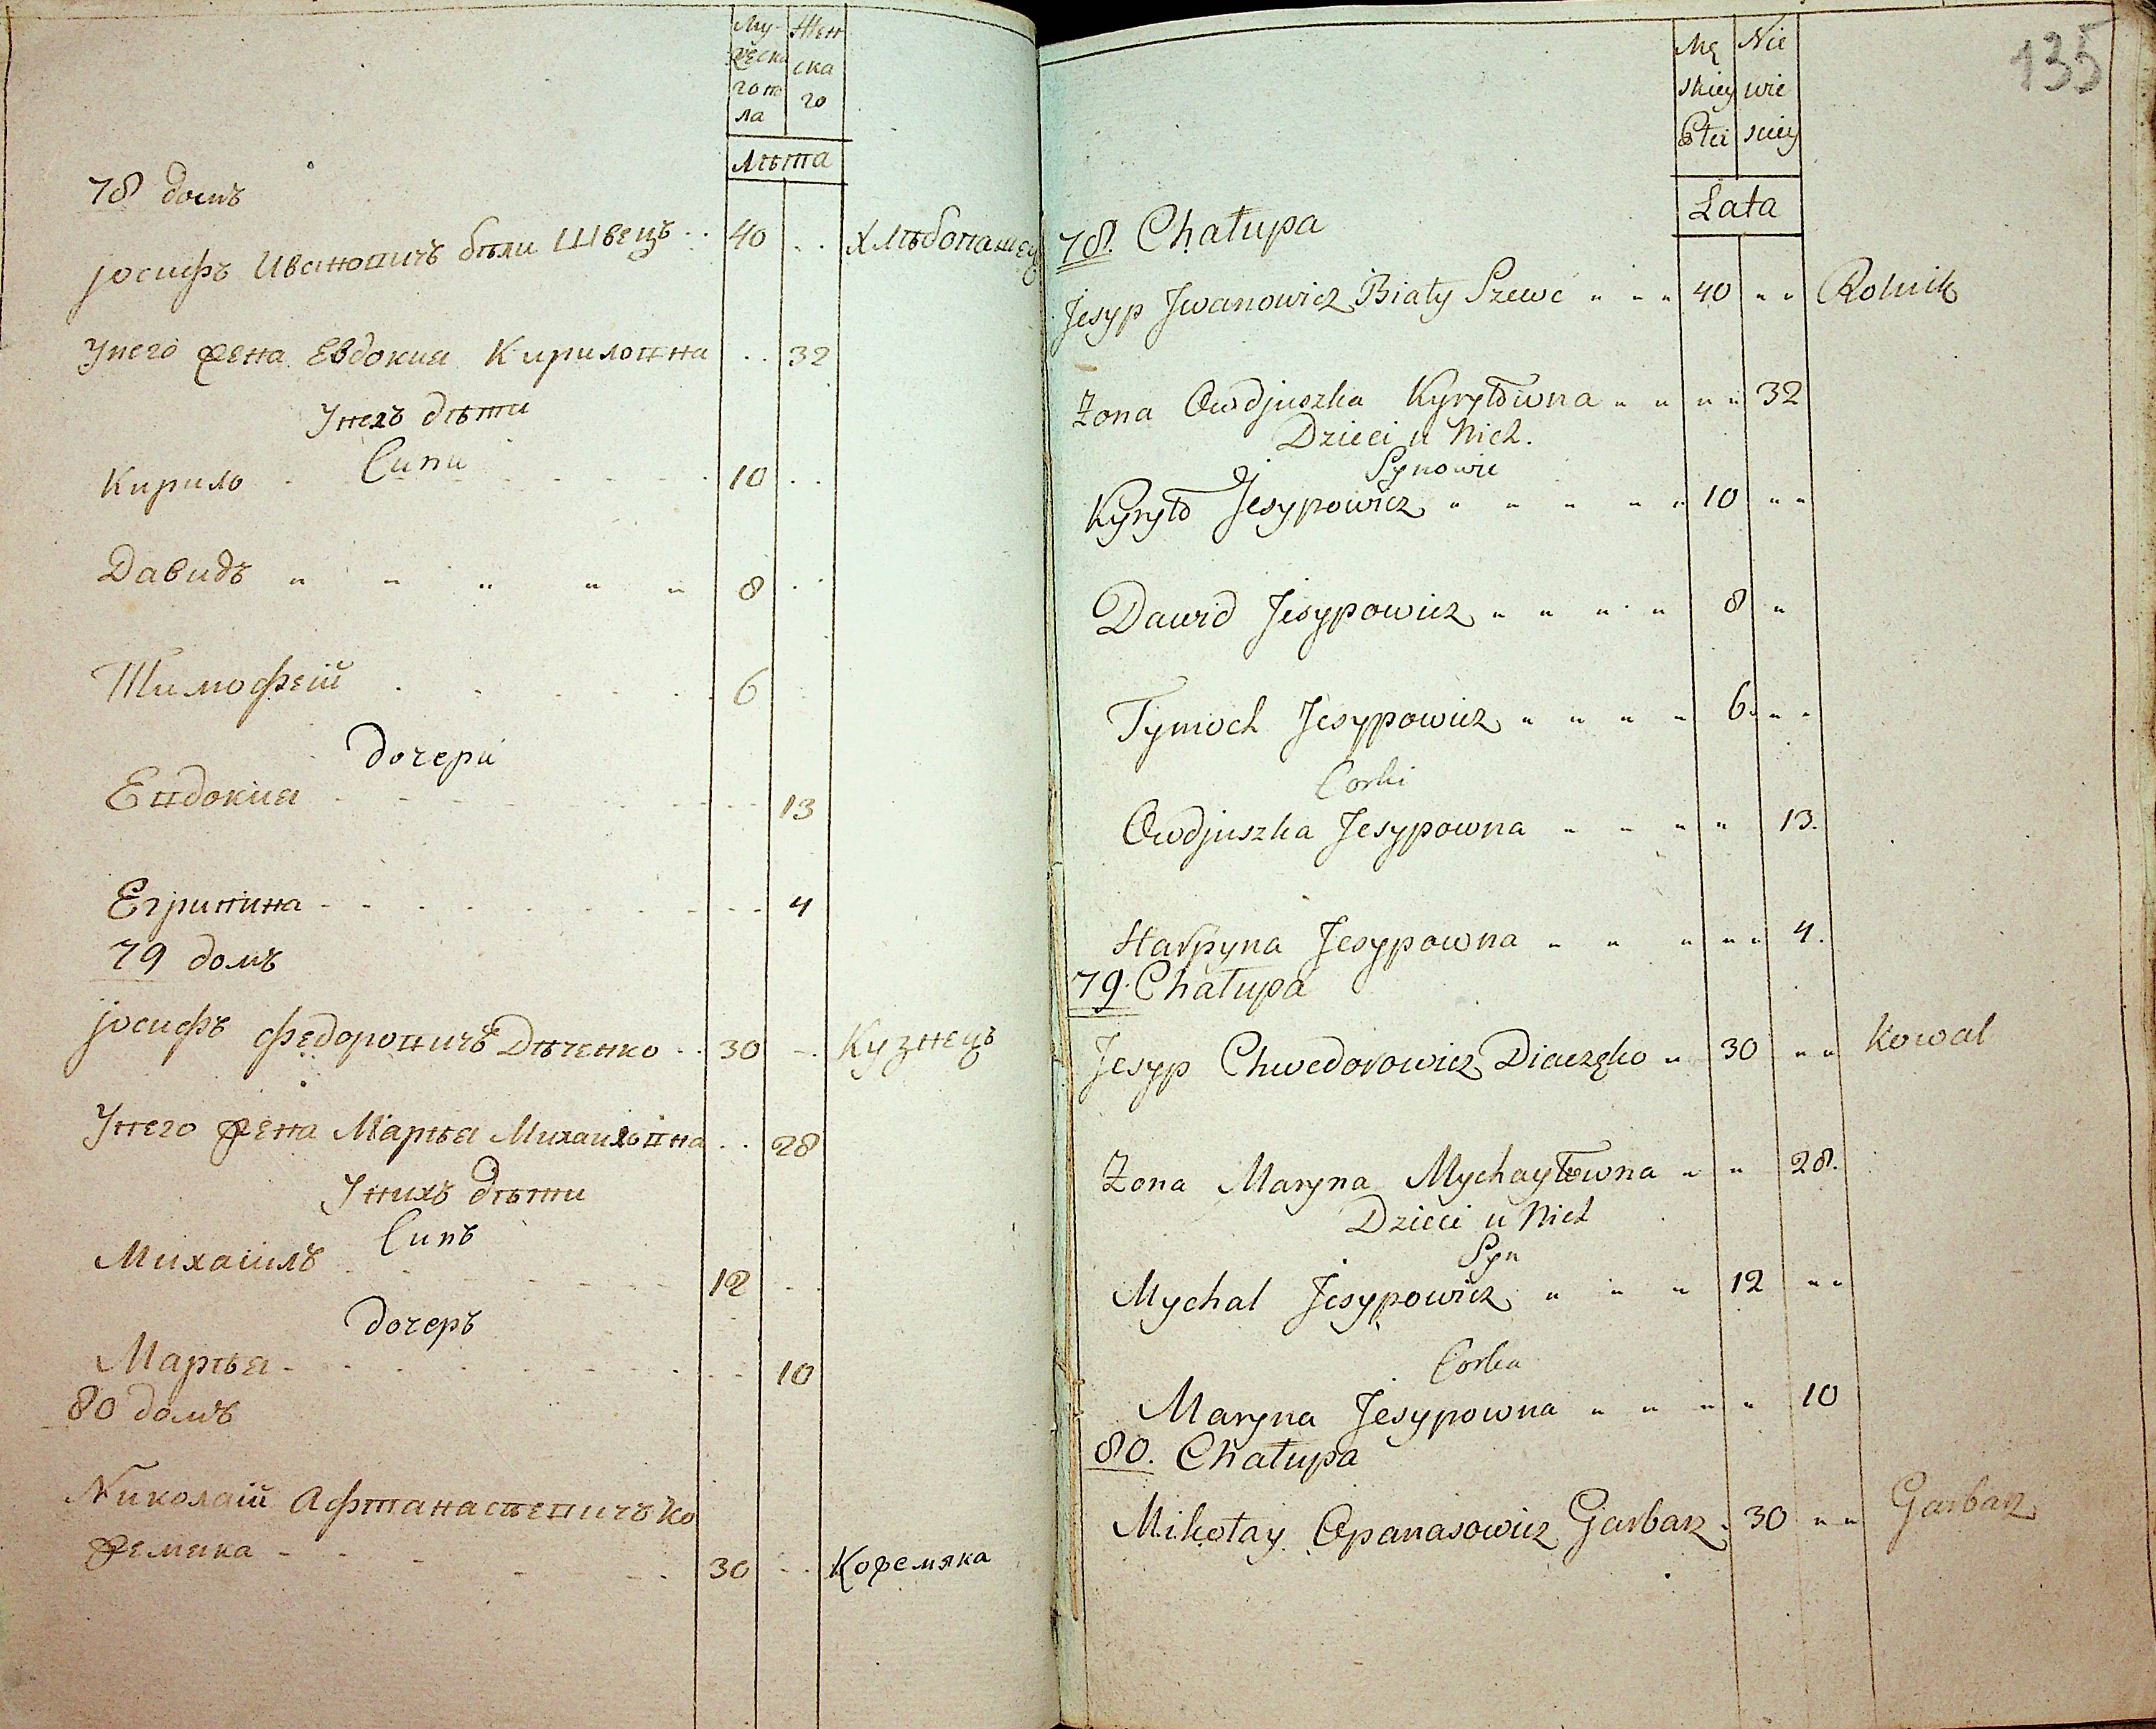 Му-
жеска
го по
ла
Жен
ска
го
Лѣта
78 домъ
Јосифъ Ивановичъ бѣли Швецъ . . 40 . . Хлѣбопашец
Унего жена Евдокиа Кириловна . . 32
Унехъ дѣти
Сини
Кирило . 10 . .
Давидъ „ „ „ „ „ 8 . .
Тимофеій . . . . . 6
дочери
Евдокиа - - - - - 13
Егрипина - - - - - 4
79 домъ
Јосифъ Федоровичъ Дяченко . . 30 - . Кузнецъ
Унего жена Марѣя Михаиловна . . 28
Унихъ дѣти
Синъ
Михаилъ - - - - 12 - -
дочеръ
Марѣя - - - - - 10
80 домъ
Николаій Афтанасѣевичъ Ко
жемяка - - - - 30 - . Кожемяка
135
Mę
skiey
Płci
Nie
wie
sciey
Lata
78. Chałupa
Jesyp Jwanowicz Biały Szewc „ „ „ 40 „ „ Rolnik
Żona Owdjuszka Kyryłowna „ „ „ „ 32
Dzieci u Nich.
Synowie
Kyryło Jesypowicz „ „ „ „ „ 10 „ „
Dawid Jesypowicz „ „ „ „ 8 „
Tymoch Jesypowicz „ „ „ „ 6 „ „
Corki
Owdjuszka Jesypowna „ „ „ „ 13.
Harpyna Jesypowna „ „ „ „ „ 4.
79. Chałupa
Jesyp Chwedorowicz Diaczęko „ 30 „ „ Kowal
Żona Maryna Mychayłowna „ „ 28.
Dzieci u Nich
Syn
Mychal Jesypowicz „ „ „ 12 „ „
Corka
Maryna Jesypowna „ „ „ „ 10
80. Chałupa
Mikołay Opanasowicz Garbarz „ 30 „ „ Garbarz